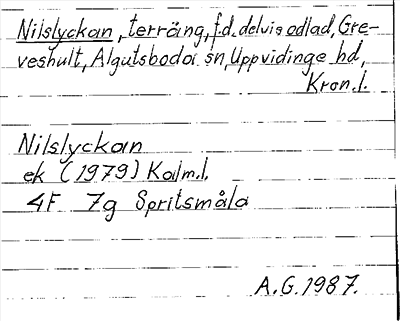 Nilslyckan, terräng, f.d. delvis odlad, Gre-
veshult, Algutsboda sn, Uppvidinge hd,
Kron.l.
Nilslyckan
ek (1979) Kalm.l.
4F 7g Spritsmåla
A.G. 1987.